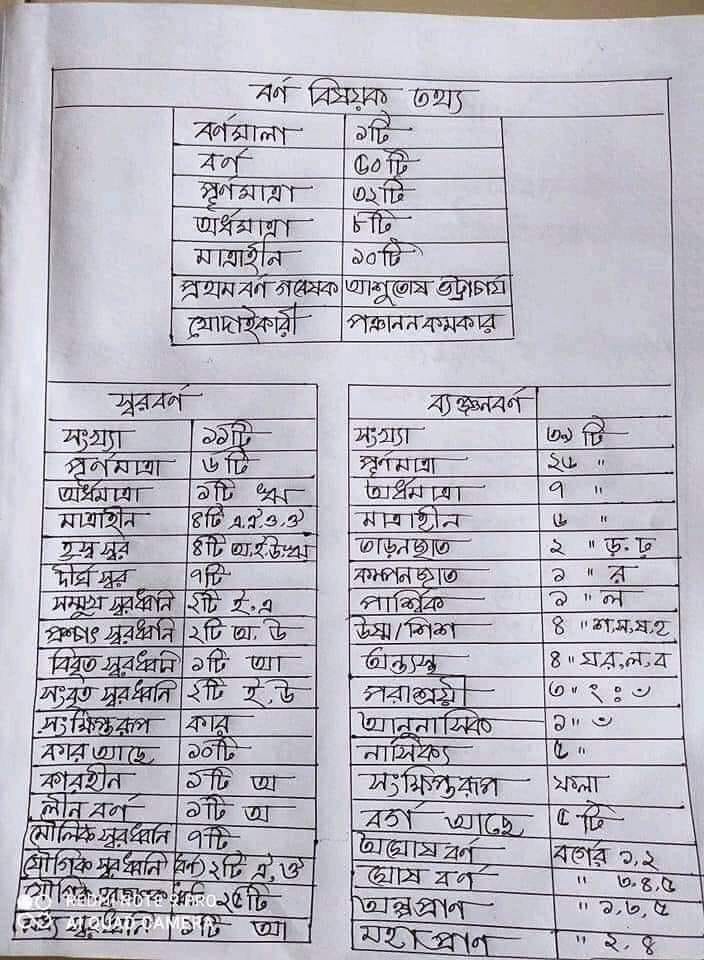 বর্ণ বিষয়ক তথ্য
বর্ণমালা ১টি
বর্ণ ৫০টি
পূর্ণমাত্রা ৩২টি
অর্ধমাত্রা ৮টি
মাত্রাহীন ১০টি
প্রথম বর্ণ গবেষক আশুতোষ ভট্টাচার্য
খোদাইকারী পঞ্চানন কর্মকার
স্বরবর্ণ
সংখ্যা ১১টি
পূর্ণমাত্রা ৬টি
অর্ধমাত্রা ১টি ঋ
মাত্রাহীন ৪টি এ,ঐ,ও,ঔ
হ্রস্ব স্বর ৪টি অ,ই,উ,ঋ
দীর্ঘ স্বর ৭টি
সম্মুখ স্বরধ্বনি ২টি ই,এ
পশ্চাৎ স্বরধ্বনি ২টি অ, উ
বিবৃত স্বরধ্বনি ১টি আ
সংবৃত স্বরধ্বনি ২টি ই, উ
সংক্ষিপ্তরূপ কার
কার আছে ১০টি
কারহীন ১টি অ
লীন বর্ণ ১টি অ
মৌলিক স্বরধ্বনি ৭টি
যৌগিক স্বরধ্বনি (বর্ণ) ২টি ঐ, ঔ
যৌগিক ২৫টি
১টি আ
REDMI NOTE 9 PRO
AI QUAD CAMERA
ব্যঞ্জনবর্ণ
সংখ্যা ৩৯ টি
পূর্ণমাত্রা ২৬ "
অর্ধমাত্রা ৭ "
মাত্রাহীন ৬ "
তাড়নজাত ২ " ড়. ঢ়
কম্পনজাত ১ " র
পার্শ্বিক ১ " ল
উষ্ম/শিশ ৪ " শ,স,ষ,হ
অন্তঃস্থ ৪ " য,র,ল,ব
পরাশ্রয়ী ৩ " ং ঃ ঁ
আনুনাসিক ১ " ঁ
নাসিক্য ৫ "
সংক্ষিপ্তরূপ ফলা
বর্গ আছে ৫ টি
অঘোষ বর্ণ বর্গের ১,২
ঘোষ বর্ণ " ৩,৪,৫
অল্পপ্রাণ " ১,৩,৫
মহাপ্রাণ " ২,৪